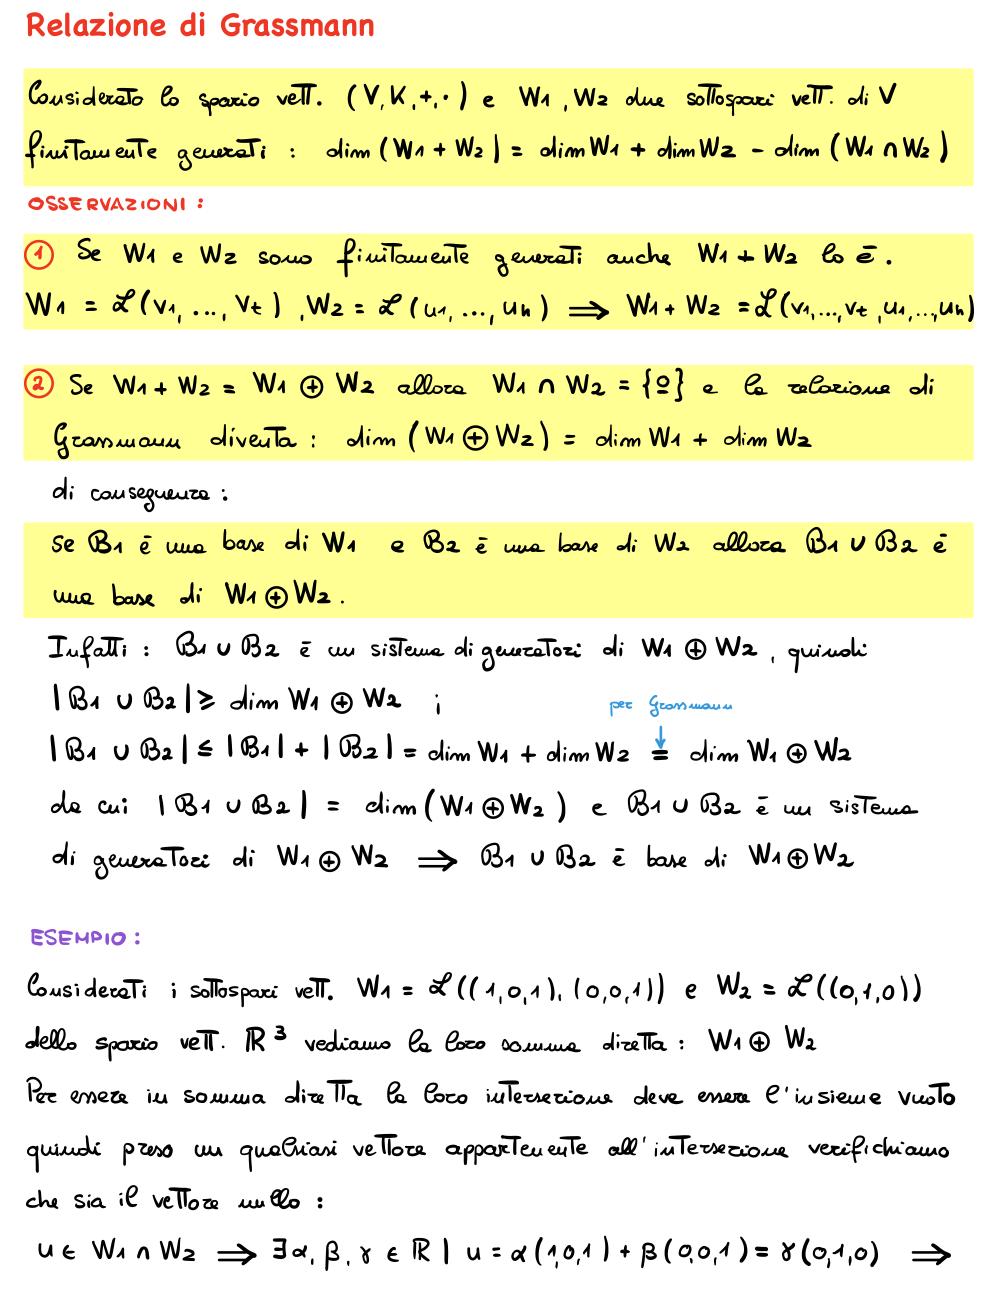 Relazione di Grassmann
Considerato lo spazio vett. (V, K, +, ·) e W1, W2 due sottospazi vett. di V
finitamente generati : dim (W1 + W2) = dim W1 + dim W2 - dim (W1 ∩ W2)
OSSERVAZIONI :
① Se W1 e W2 sono finitamente generati anche W1 + W2 lo è.
W1 = ℒ(v1, ..., vt) , W2 = ℒ(u1, ..., uh) ⟹ W1 + W2 = ℒ(v1,...,vt,u1,...,uh)
② Se W1 + W2 = W1 ⊕ W2 allora W1 ∩ W2 = {0} e la relazione di
Grassmann diventa : dim (W1 ⊕ W2) = dim W1 + dim W2
di conseguenza :
se B1 è una base di W1 e B2 è una base di W2 allora B1 ∪ B2 è
una base di W1 ⊕ W2.
Infatti : B1 ∪ B2 è un sistema di generatori di W1 ⊕ W2 , quindi
|B1 ∪ B2| ≥ dim W1 ⊕ W2 ;
per Grassmann
↓
|B1 ∪ B2| ≤ |B1| + |B2| = dim W1 + dim W2 = dim W1 ⊕ W2
da cui |B1 ∪ B2| = dim (W1 ⊕ W2) e B1 ∪ B2 è un sistema
di generatori di W1 ⊕ W2 ⟹ B1 ∪ B2 è base di W1 ⊕ W2
ESEMPIO :
Considerati i sottospazi vett. W1 = ℒ((1,0,1), (0,0,1)) e W2 = ℒ((0,1,0))
dello spazio vett. ℝ³ vediamo la loro somma diretta : W1 ⊕ W2
Per essere in somma diretta la loro intersezione deve essere l'insieme vuoto
quindi preso un qualsiasi vettore appartenente all'intersezione verifichiamo
che sia il vettore nullo :
u ∈ W1 ∩ W2 ⟹ ∃ α, β, γ ∈ ℝ | u = α(1,0,1) + β(0,0,1) = γ(0,1,0) ⟹